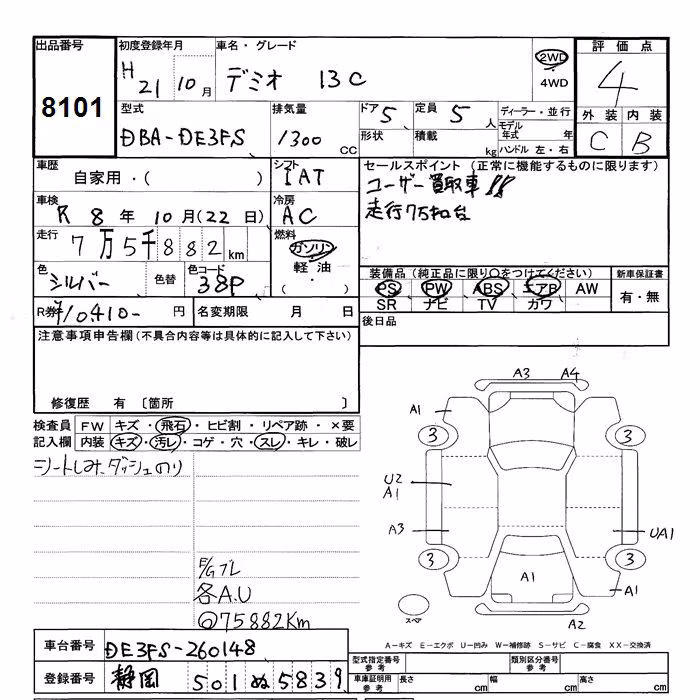 出品番号 初度登録年月 車名・グレード 評価点
8101 H 21 10月 デミオ 13C 2WD 4WD 4
型式 排気量 ドア 5 定員 5人 ディーラー・並行 外装 内装
DBA-DE3FS 1300 CC 形状 積載 kg モデル年式 年 C B
ハンドル 左・右
車歴 シフト セールスポイント (正常に機能するものに限ります)
自家用・( ) IAT ユーザー買取車!!
車検 冷房 走行7万キロ台
R 8年 10月(22日) AC
走行 7万5千882km 燃料 ガソリン 軽油・( )
色 シルバー 色替 色コード 38P
装備品 (純正品に限り○をつけてください) 新車保証書
PS PW ABS エアB AW 有・無
SR ナビ TV カワ
R券 ¥10410- 円 名変期限 月 日 後日品
注意事項申告欄 (不具合内容等は具体的に記入して下さい)
修復歴 有 〔箇所 〕
検査員 FW キズ・飛石・ヒビ割・リペア跡・×要
記入欄 内装 キズ・汚レ・コゲ・穴・スレ・キレ・破レ
シートしみ、ダッシュのり
E/Gブレ
各A.U
@75882Km
A3 A4
A1
3 3
U2
A1
A3 UA1
3 3
A1 A1
スペア A2
A-キズ E-エクボ U-凹み W-補修跡 S-サビ C-腐食 XX-交換済
車台番号 DE3FS-260148 型式指定番号 参考 類別区分番号 参考
登録番号 静岡 501 ぬ 5839 車庫証明用 参考 長さ cm 幅 cm 高さ cm